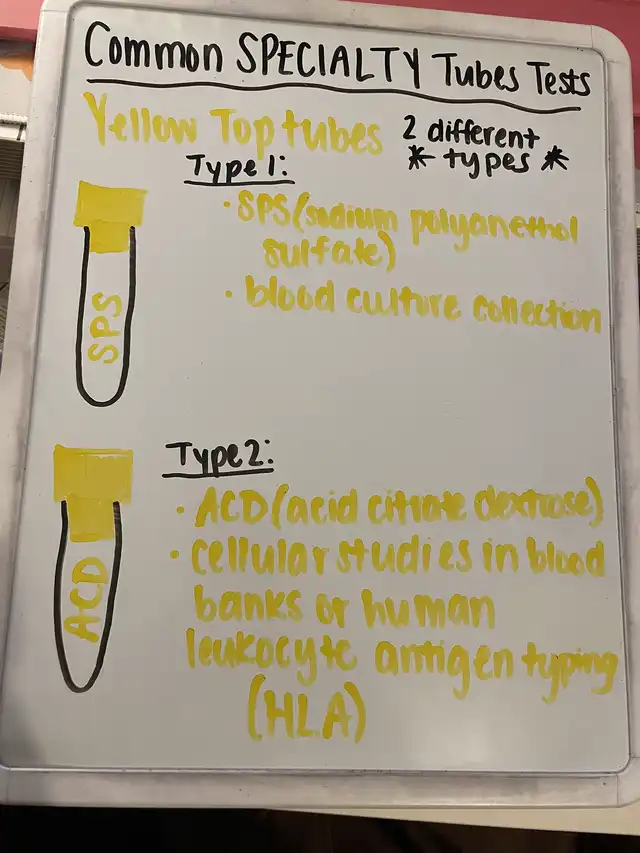 Common SPECIALTY Tubes Tests
Yellow Top tubes
2 different
* types *
Type 1:
• SPS (sodium polyanethol
sulfate)
• blood culture collection
SPS
Type 2:
• ACD (acid citrate dextrose)
• cellular studies in blood
banks or human
leukocyte antigen typing
(HLA)
ACD